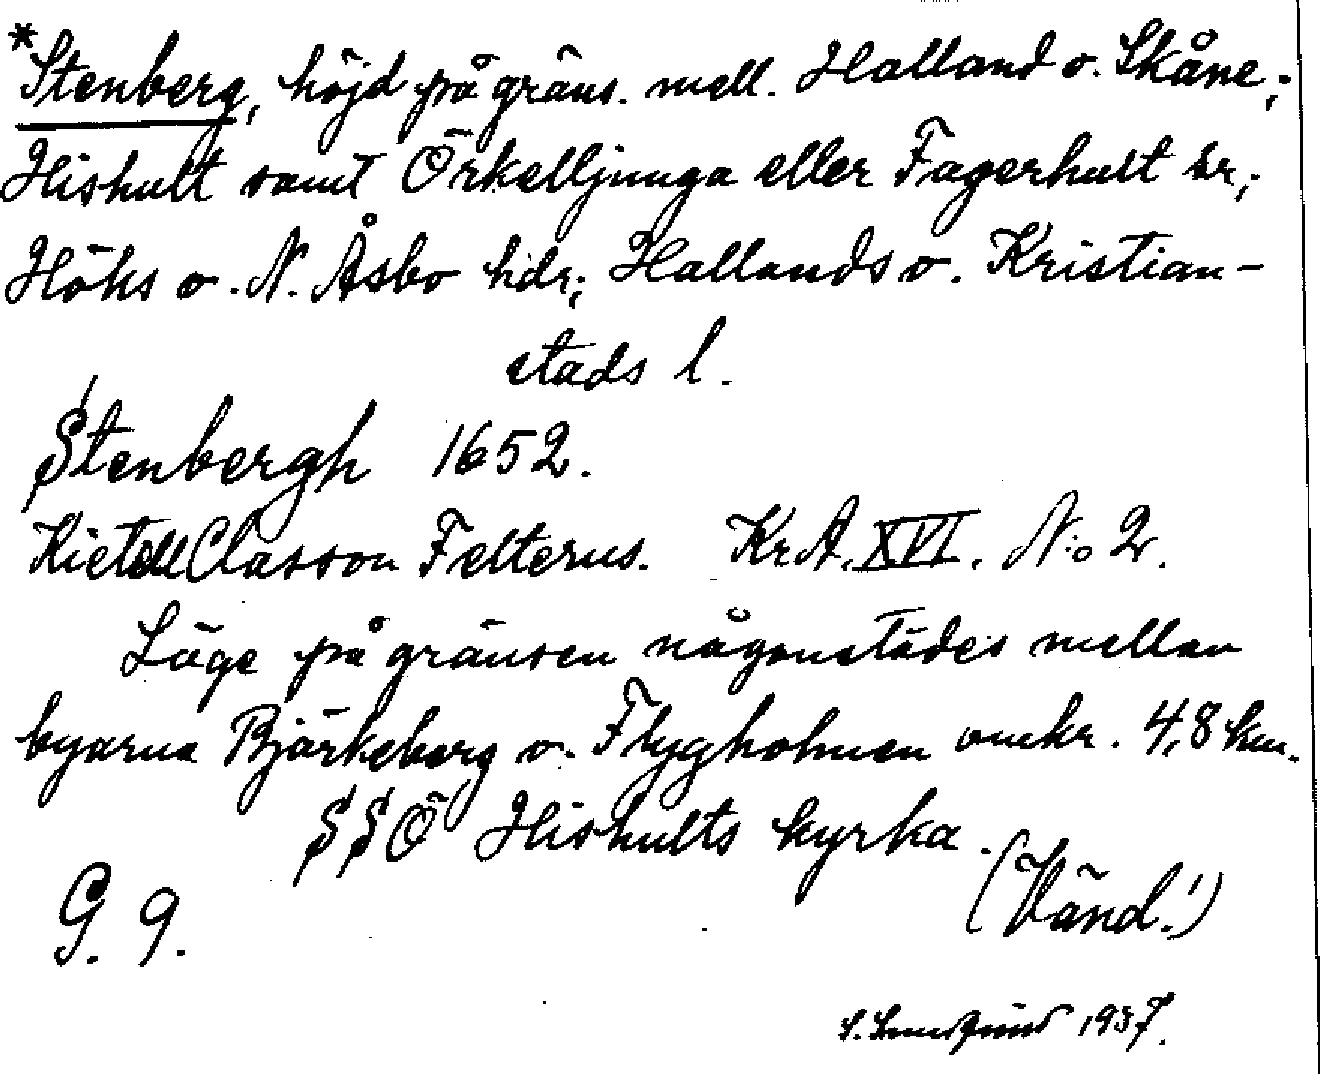 *Stenberg, höjd på gräns. mell. Halland o. Skåne;
Hishult samt Örkelljunga eller Fagerhult sr;
Höks o. N. Åsbo hdr; Hallands o. Kristian-
stads l.
Stenbergh 1652.
Kietell Classon Felterus. Kr.A. XVI. N:o 2.
Läge på gränsen någonstädes mellan
byarna Björkeberg o. Flygholmen omkr. 4,8 km.
SSÖ Hishults kyrka.
(Vänd!)
G. 9.
1937.